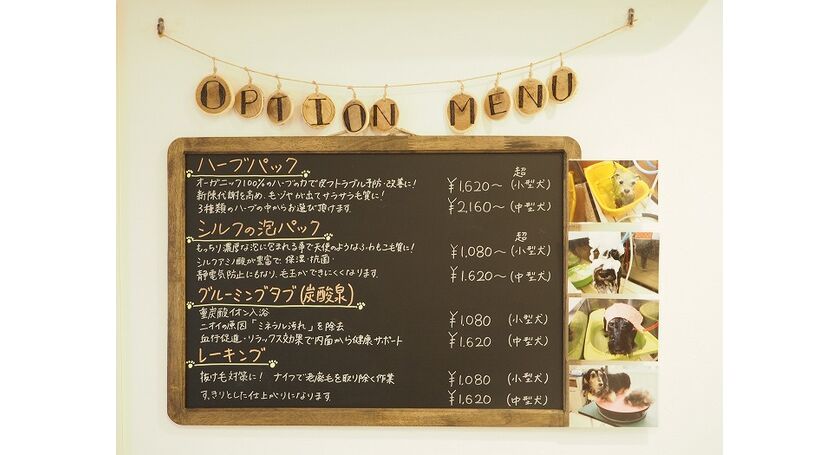 OPTION MENU
ハーブパック
オーガニック100%のハーブの力で皮フトラブル予防・改善に!
新陳代謝を高め、毛ヅヤが出てサラサラ毛質に!
3種類のハーブの中からお選び頂けます
¥1,620〜 (超小型犬)
¥2,160〜 (中型犬)
シルクの泡パック
もっちり濃厚な泡に包まれる事で天使のようなふわもこ毛質に!
シルクアミノ酸が豊富で、保湿・抗菌・
静電気防止にもなり、毛玉ができにくくなります
¥1,080〜 (超小型犬)
¥1,620〜 (中型犬)
グルーミングタブ(炭酸泉)
重炭酸イオン入浴
ニオイの原因「ミネラル汚れ」を除去
血行促進・リラックス効果で内面から健康サポート
¥1,080 (小型犬)
¥1,620 (中型犬)
レーキング
抜け毛対策に! ナイフで死廃毛を取り除く作業
すっきりとした仕上がりになります
¥1,080 (小型犬)
¥1,620 (中型犬)